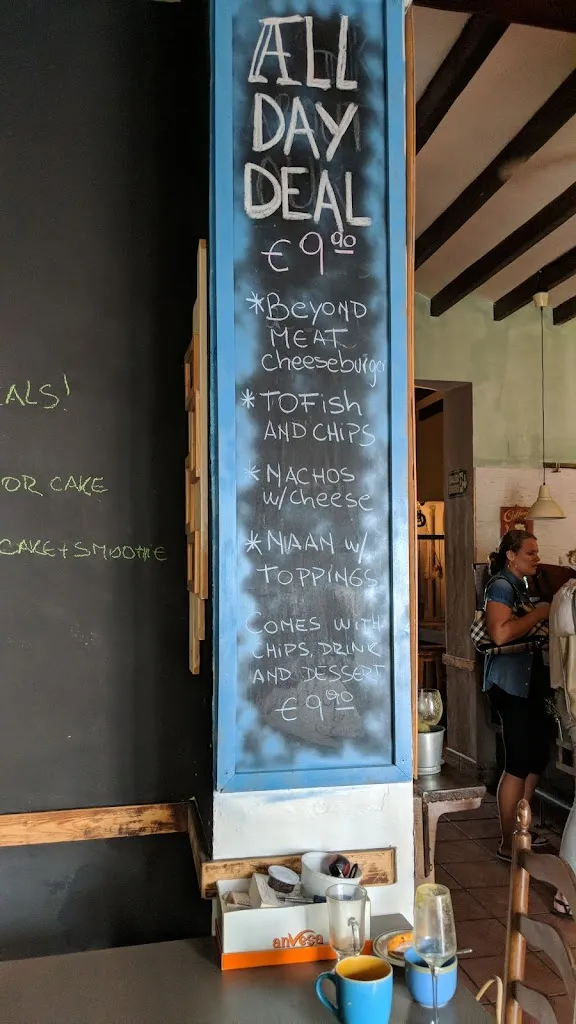 ALL
DAY
DEAL
€ 9.90
*BEYOND
MEAT
cheeseburger
*TOFish
AND CHIPS
*NACHOS
w/cheese
*NAAN w/
TOPPINGS
COMES WITH
CHIPS, DRINK
AND DESSERT
€ 9.90
ALS!
OR CAKE
CAKE + SMOOTHIE
anvesa